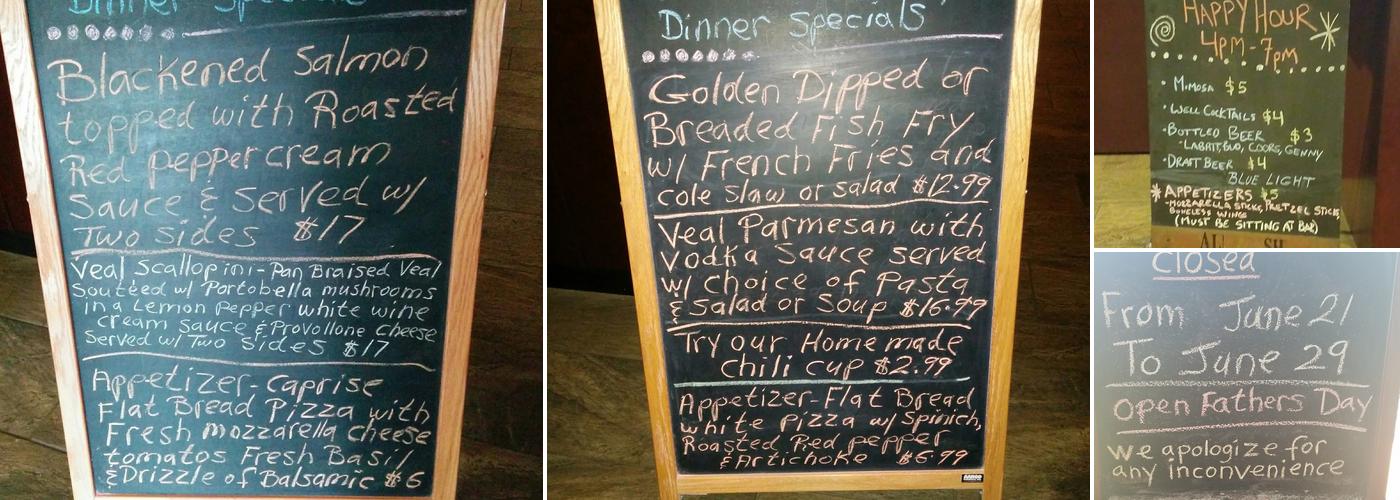 Dinner Specials
Blackened Salmon
topped with Roasted
Red pepper cream
Sauce & Served w/
Two sides $17
Veal Scallopini-Pan Braised Veal
Soutéed w/ Portobella mushrooms
in a Lemon pepper white wine
cream sauce & Provollone cheese
Served w/ Two Sides $17
Appetizer-Caprise
Flat Bread Pizza with
Fresh mozzarella cheese
tomatos Fresh Basil
& Drizzle of Balsamic $6
Dinner Specials
Golden Dipped or
Breaded Fish Fry
w/ French Fries and
cole slaw or salad $12.99
Veal Parmesan with
Vodka Sauce served
w/ choice of Pasta
& Salad or Soup $16.99
Try our Homemade
chili cup $2.99
Appetizer-Flat Bread
white pizza w/ Spinich,
Roasted Red pepper
& Artichoke $6.99
HAPPY HOUR
4pm-7pm
• MIMOSA $5
• WELL COCKTAILS $4
• BOTTLED BEER $3
-LABATT, BUD, COORS, GENNY
• DRAFT BEER $4
BLUE LIGHT
* APPETIZERS $5
-MOZZARELLA STICKS, PRETZEL STICKS
BONELESS WINGS
(MUST BE SITTING AT BAR)
closed
From June 21
To June 29
open Fathers Day
we apologize for
any inconvenience